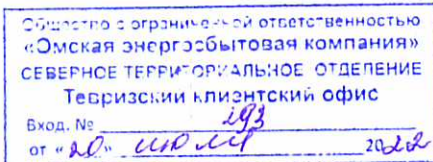 Общество с ограниченной ответственностью
«Омская энергосбытовая компания»
СЕВЕРНОЕ ТЕРРИТОРИАЛЬНОЕ ОТДЕЛЕНИЕ
Тевризский клиентский офис
Вход. № 293
от «20» июля 2022